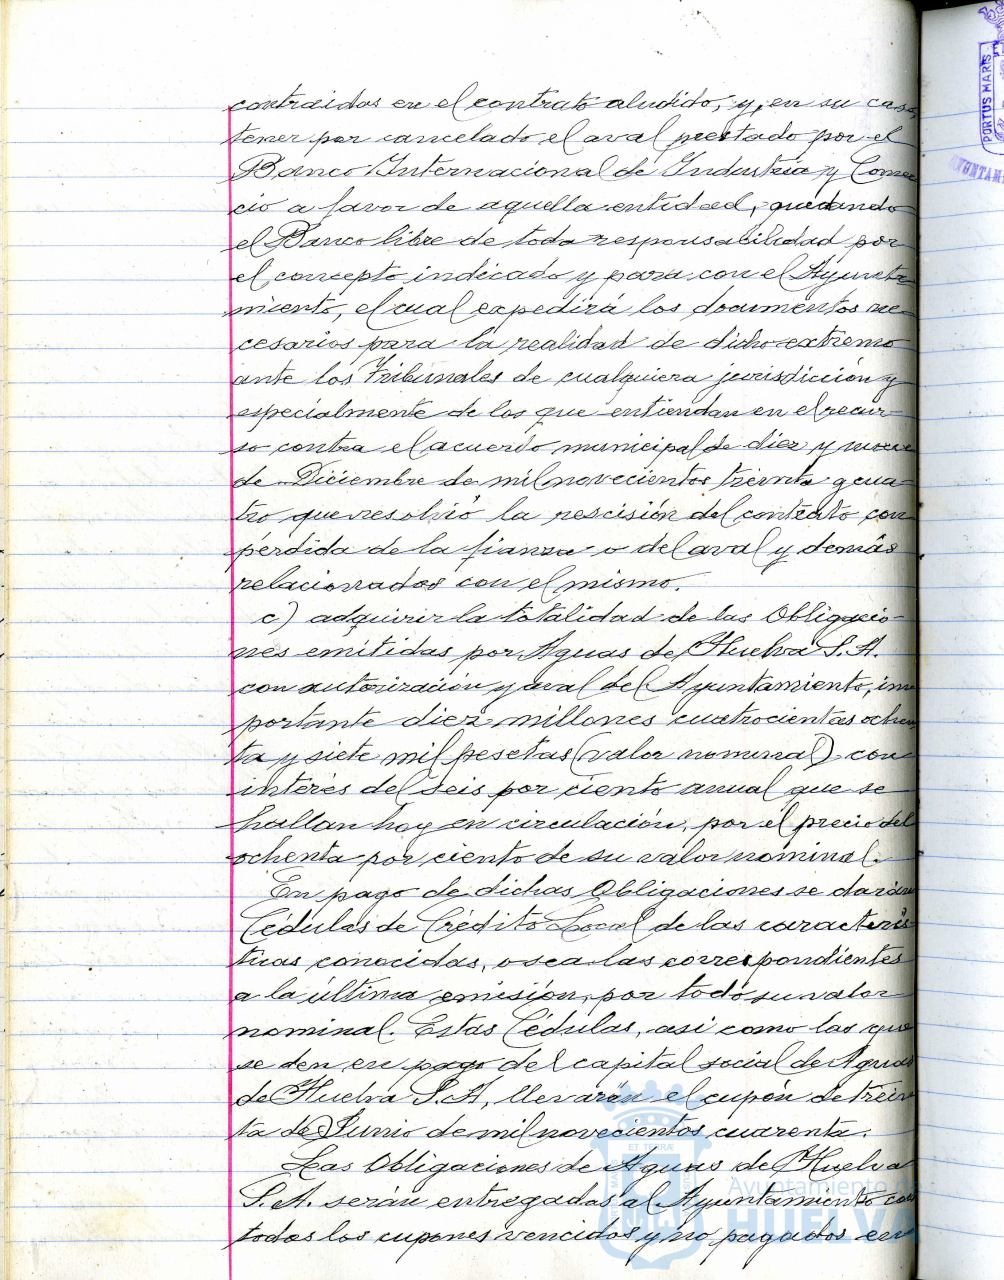 contraidas en el contrato aludido, y, en su caso,
tener por cancelado el aval prestado por el
Banco Internacional de Industria y Comer
cio a favor de aquella entidad, quedando
el Banco libre de toda responsabilidad por
el concepto indicado y para con el Ayunta
miento, el cual expedirá los documentos ne-
cesarios para la realidad de dicho extremo
ante los Tribunales de cualquiera jurisdicción y
especialmente de los que entiendan en el recur-
so contra el acuerdo municipal de diez y nueve
de Diciembre de mil novecientos treinta y cua-
tro que resolvió la rescisión del contrato con
pérdida de la fianza o del aval y demás
relacionados con el mismo.
c) adquirir la totalidad de las Obligacio-
nes emitidas por Aguas de Huelva S.A.
con autorización y aval del Ayuntamiento, im
portante diez millones cuatrocientas ochen
ta y siete mil pesetas (valor nominal) con
interés del seis por ciento anual que se
hallan hoy en circulación, por el precio del
ochenta por ciento de su valor nominal.
En pago de dichas Obligaciones se darán
Cédulas de Crédito Local de las caracterís
ticas conocidas, o sea las correspondientes
a la última emisión, por todo su valor
nominal. Estas Cédulas, asi como las que
se den en pago del capital social de Aguas
de Huelva S.A, llevarán el cupón de trein
ta de Junio de mil novecientos cuarenta.
Las Obligaciones de Aguas de Huelva
S.A. serán entregadas al Ayuntamiento con
todos los cupones vencidos y no pagados en
PORTUS MARIS
AYUNTAM
Ayuntamiento de
HUELVA